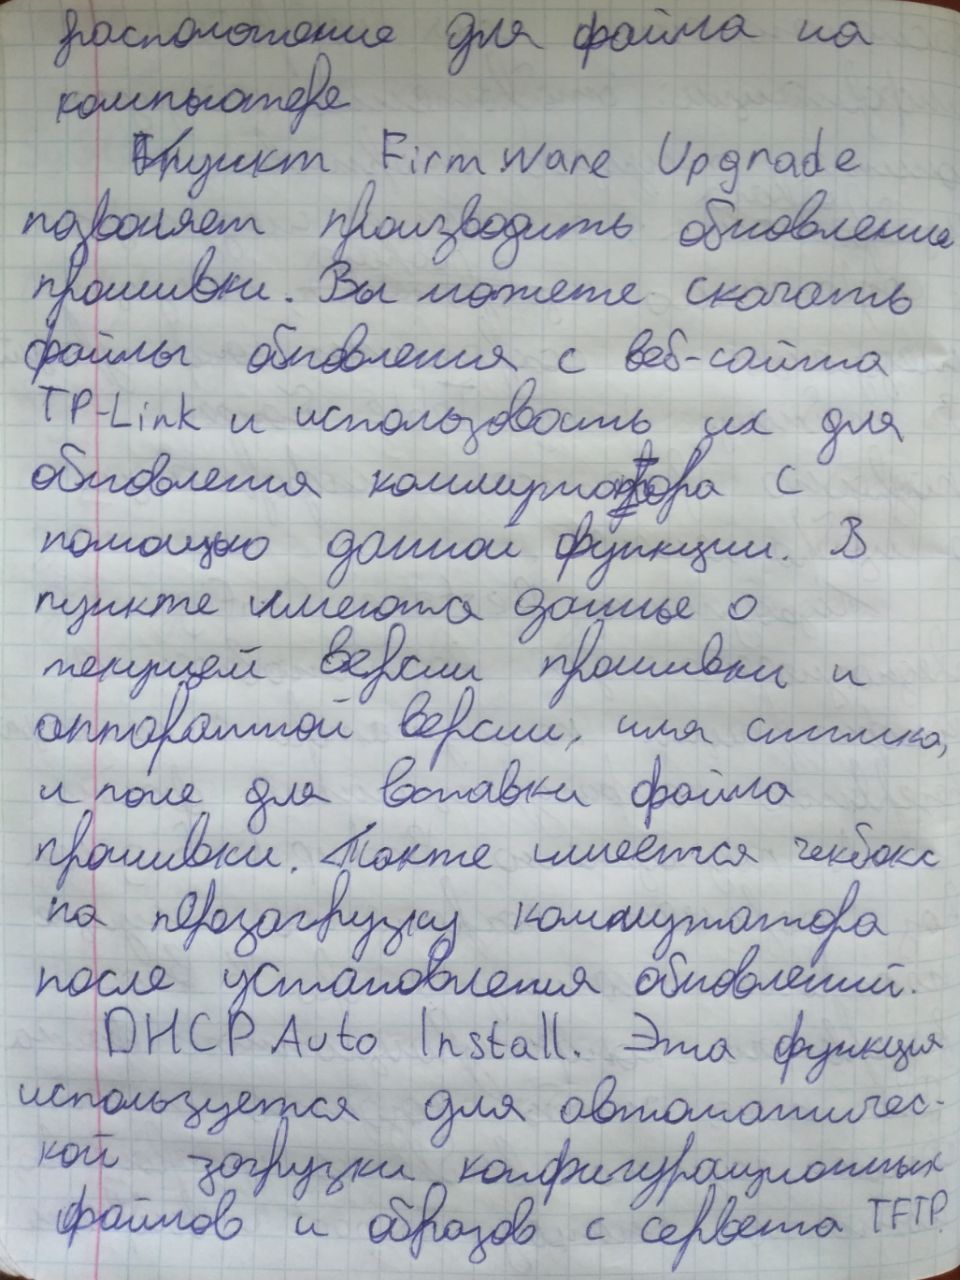 расположение для файла на
компьютере
Пункт Firmware Upgrade
позволяет производить обновление
прошивки. Вы можете скачать
файлы обновления с веб-сайта
TP-Link и использовать их для
обновления коммутатора с
помощью данной функции. В
пункте имеются данные о
текущей версии прошивки и
аппаратной версии, имя снимка,
и поле для вставки файла
прошивки. Также имеется чекбокс
на перезагрузку коммутатора
после установления обновлений.
DHCP Auto Install. Эта функция
используется для автоматичес-
кой загрузки конфигурационных
файлов и образов с сервета TFTP.